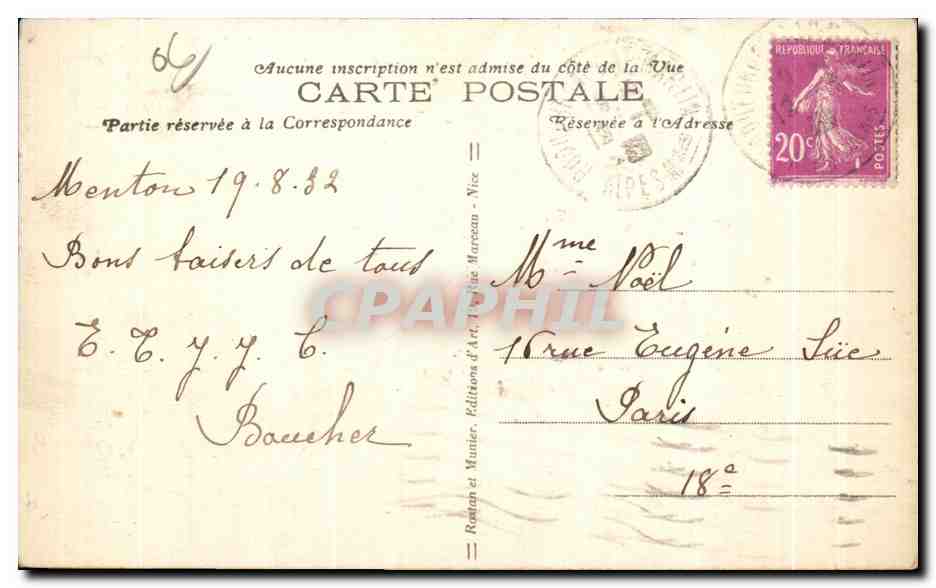 06
Aucune inscription n'est admise du côté de la Vue
CARTE POSTALE
Partie réservée à la Correspondance
Réservée à l'Adresse
REPUBLIQUE FRANÇAISE
20c
POSTES
ALPES
Menton 19.8.32
Bons baisers de tous
E. T. Y. Y. C.
Boucher
Rostan et Munier, Editions d'Art, Rue Marceau - Nice
Mme Noël
16 rue Eugéne Süe
Paris
18e
CPAPHIL